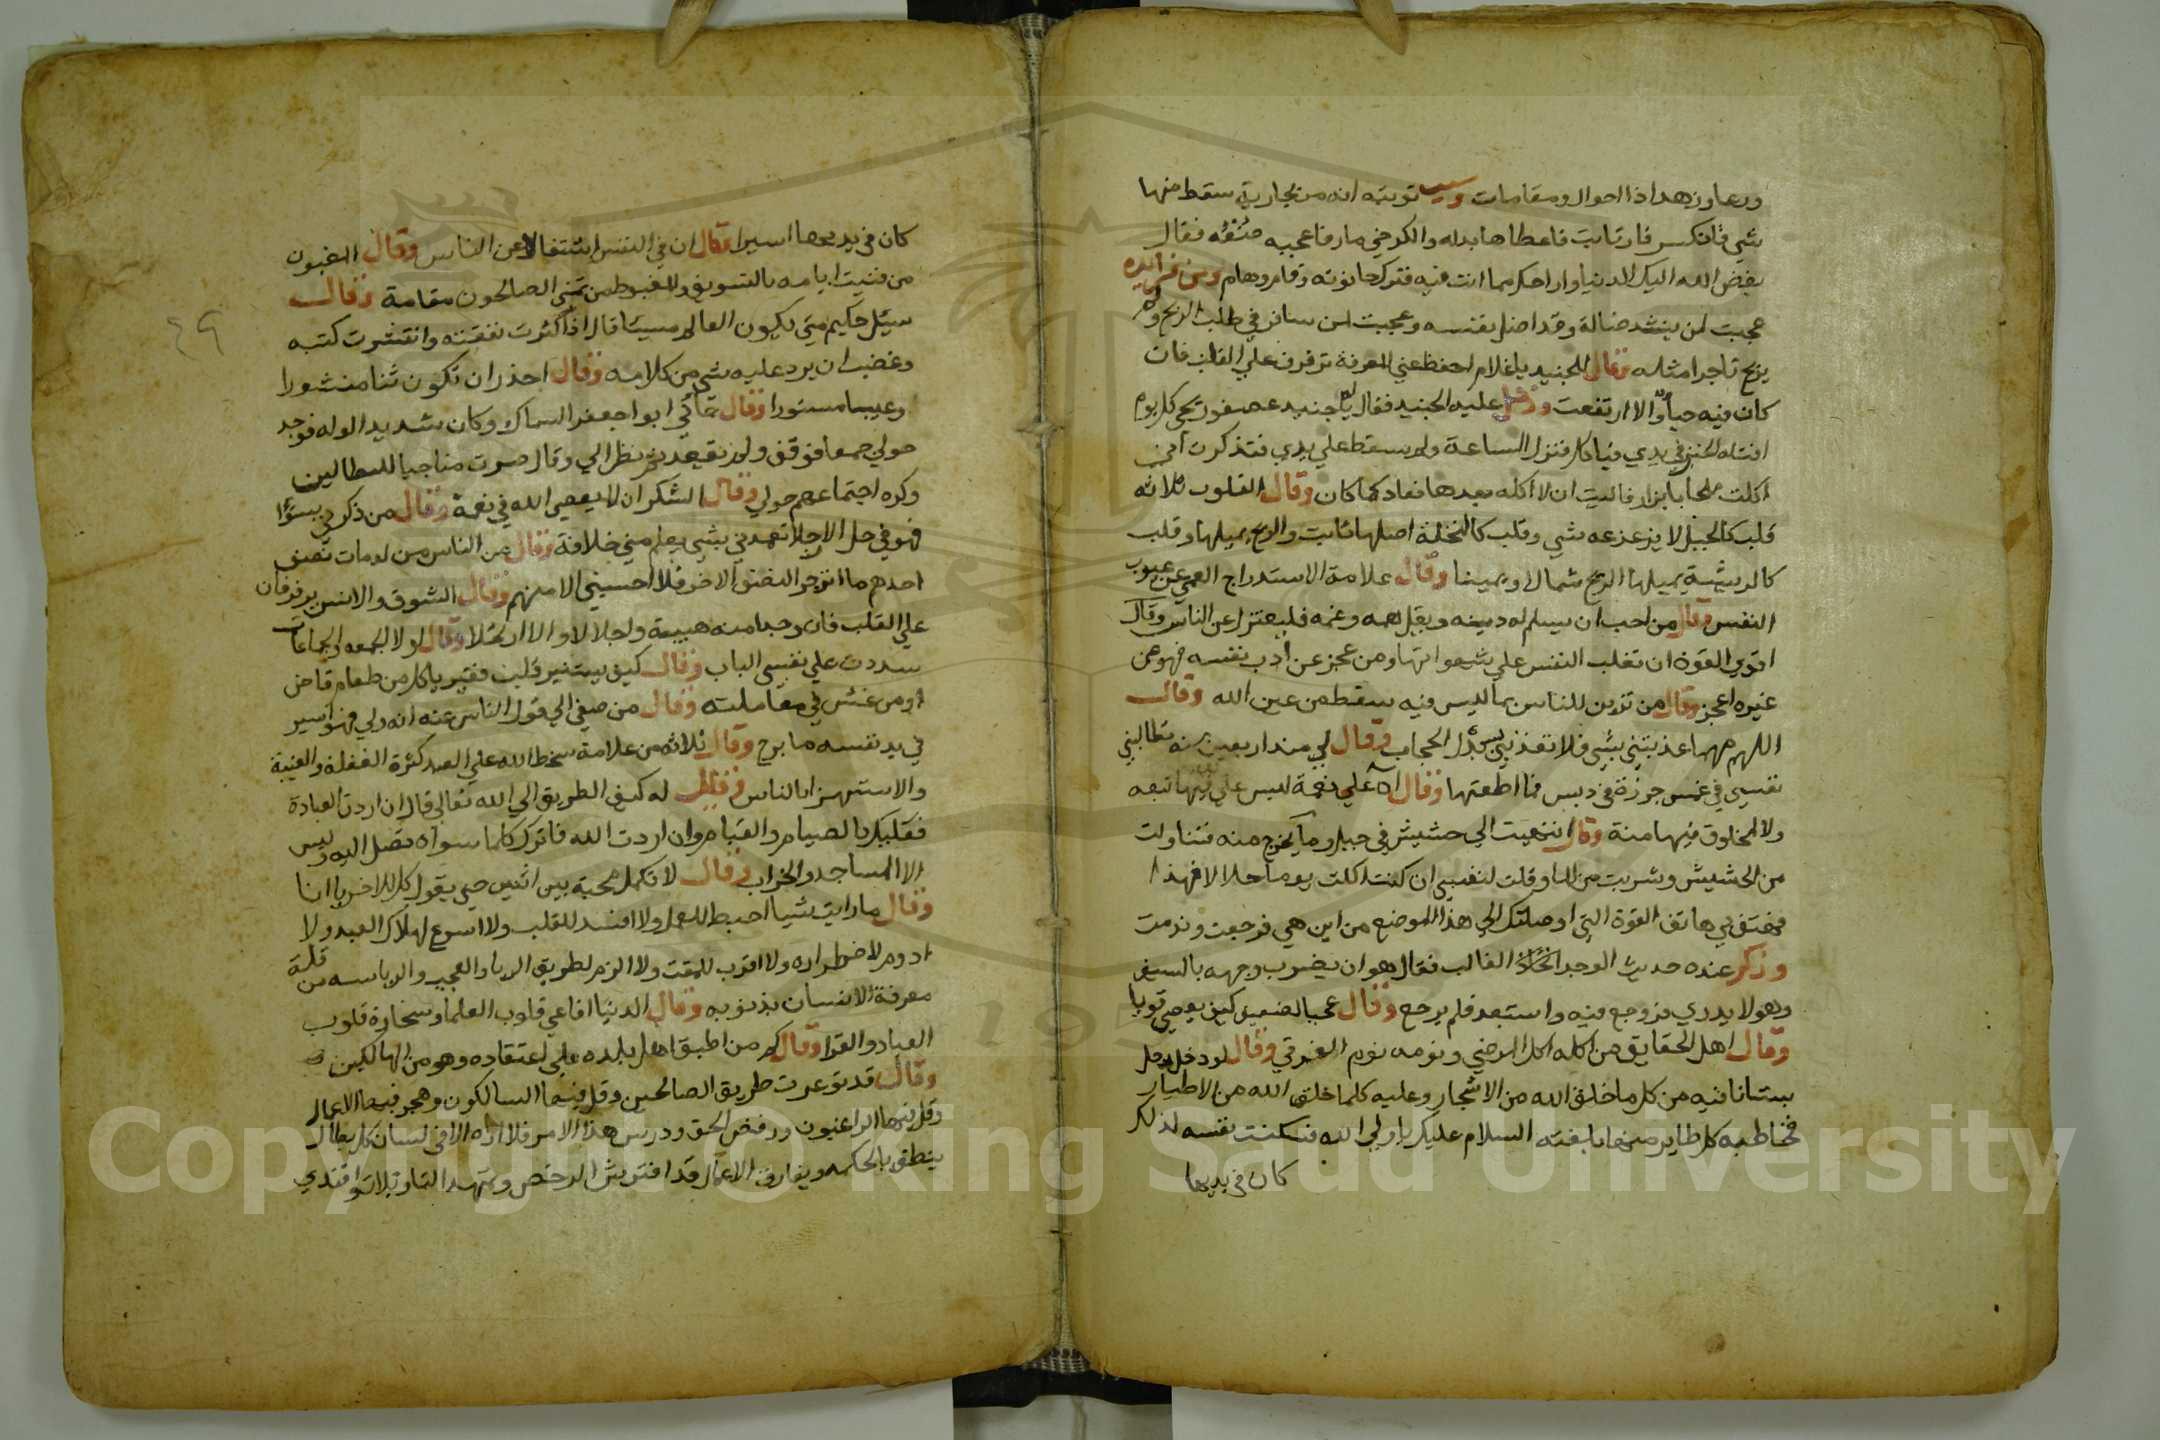 ورعا وزهدا ذا احوال ومقامات وسبب توبته انه مر بجارية سقط منها
شي فانكسر فارتابت فاعطاها بدله والكرخي مار فاعجبه صنعه فقال
بغض الله اليك الدنيا واراحك مما انت فيه فترك حانوته وقام وهام ومن فوايده
عجبت لمن ينشد ضالة وقد اضل نفسه وعجبت لمن سافر في طلب الربح ولم
يربح تاجرا مثله وقال للجنيد ياغلام احفظ عني المعرفة ترفرف علي القلب فان
كان فيه حيا والا ارتفعت ودخل عليه الجنيد فقال يا جنيد عصفور يجي كل يوم
افتله الخبز في يدي فياكل فنزل الساعة ولم يسقط علي يدي فتذكرت اني
اكلت ملحا بابزار فاليت ان لا اكله بعدها فعاد كما كان وقال القلوب ثلاثه
قلب كالجبل لا يزعزعه شي وقلب كالنخلة اصلها ثابت والريح يميلها وقلب
كالريشة يميلها الريح شمالا ويمينا وقال علامة الاستدراج العمي عن عيوب
النفس وقال من احب ان يسلم له دينه ويقل همه وغمه فليعتزل عن الناس وقال
اقوي القوة ان تغلب النفس علي شهواتها ومن عجز عن ادب نفسه فهو عن
غيره اعجز وقال من تزين للناس بما ليس فيه سقط من عين الله وقال
اللهم مهما عذبتني بشي فلا تعذبني بذل الحجاب وقال لي منذ اربعين سنه تطالبني
نفسي في غمس جوزة في دبس فما اطعتها وقال اه علي لقمة ليس علي فيها تبعه
ولا لمخلوق فيها منة وقال انتهيت الي حشيش في جبل وما يخرج منه فتناولت
من الحشيش وشربت من الما وقلت لنفسي ان كنت اكلت يوما حلالا فهذا
فهتف بي هاتف القوة التي اوصلتك الي هذا الموضع من اين هي فرجعت وندمت
وذكر عنده حديث الوجد الغالب فقال هو ان يضرب وجهه بالسيف
وهو لا يدري فروجع فيه واستبعد فلم يرجع وقال عجبا لضعيف كيف يعصي قويا
وقال اهل الحقايق من اكله اكل المرضي ونومه نوم الغرقي وقال لو دخل رجل
بستانا فيه من كل ما خلق الله من الاشجار وعليه كلما خلق الله من الاطيار
فخاطبه كل طاير منها بلغته السلام عليك يا ولي الله فسكنت نفسه لذلك
كان في يديها
كان في يديها اسيرا وقال ان في النفس اشتغالا عن الناس وقال المغبون
من فنيت ايامه بالتسويف والمغبوط من تمني الصالحون مقامة وقال
سيل حكيم متي يكون العالم مسيئا قال اذا كثرت نفقته وانتشرت كتبه
وغضب ان يرد عليه شي من كلامه وقال احذر ان تكون ثنا منشورا
وعيبا مستورا وقال جآني ابو اجعفر السماك وكان شديد الوله فوجد
حولي جمعا فوقف ولم يقعد ثم نظر الي وقال صرت مناخا للبطالين
وكره اجتماعهم حولي وقال الشكر ان لا يعصي الله في نعمة وقال من ذكرني بسوا
فهو في حل الا رجلا تعمدني بشي يعلم مني خلافة وقال من الناس من لو مات نصف
احدهم ما انزجر النصف الاخر فلا احسبني الا منهم وقال الشوق والانس يرفرفان
علي القلب فان وجدا منه هيبة واجلالا والا ارتحلا وقال لولا الجمعه والجماعات
سددت علي نفسي الباب وقال كيف يستنير قلب فقير ياكل من طعام قاض
او من غش في معاملته وقال من صغي الي قول الناس عنه انه ولي فهو اسير
في يد نفسه ما برح وقال ثلاثه من علامة سخط الله علي العبد كثرة الغفلة والغيبة
والاستهزا بالناس وقيل له كيف الطريق الي الله تعالي قال ان اردت العبادة
فعليك بالصيام والقيام وان اردت الله فاترك كلما سواه تصل اليه وليس
الا المساجد والخراب وقال لا تكمل محبة بين اثنين حتي يقول كل للاخر يا انا
وقال ما رايت شيا احبط للعمل ولا افسد للقلب ولا اسرع لهلاك العبد ولا
ادوم لاضطراره ولا اقرب للمقت ولا الزم لطريق الريا والعجب والرياسه من قلة
معرفة الانسان بذنوبه وقال الدنيا افاعي قلوب العلما وسحارة قلوب
العباد والقرا وقال كم من اطبق اهل بلده علي اعتقاده وهو من الهالكين
وقال قد توعرت طريق الصالحين وقل فيها السالكون وهجر فيها الاعمال
وقل فيها الراغبون ورفض الحق ودرس هذا الامر فلا اراه الا في لسان كل بطال
ينطق بالحكمه ويفارق الاعمال قد افترش الرخص وتمهد التاويلات واقتدي
٤٩
Copyright © King Saud University